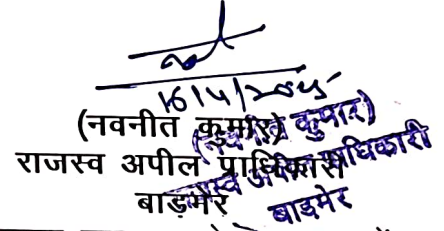 16/4/2025
(नवनीत कुमार)
राजस्व अपील प्राधिकारी
बाड़मेर
(नवनीत कुमार)
राजस्व अपील प्राधिकारी
बाड़मेर